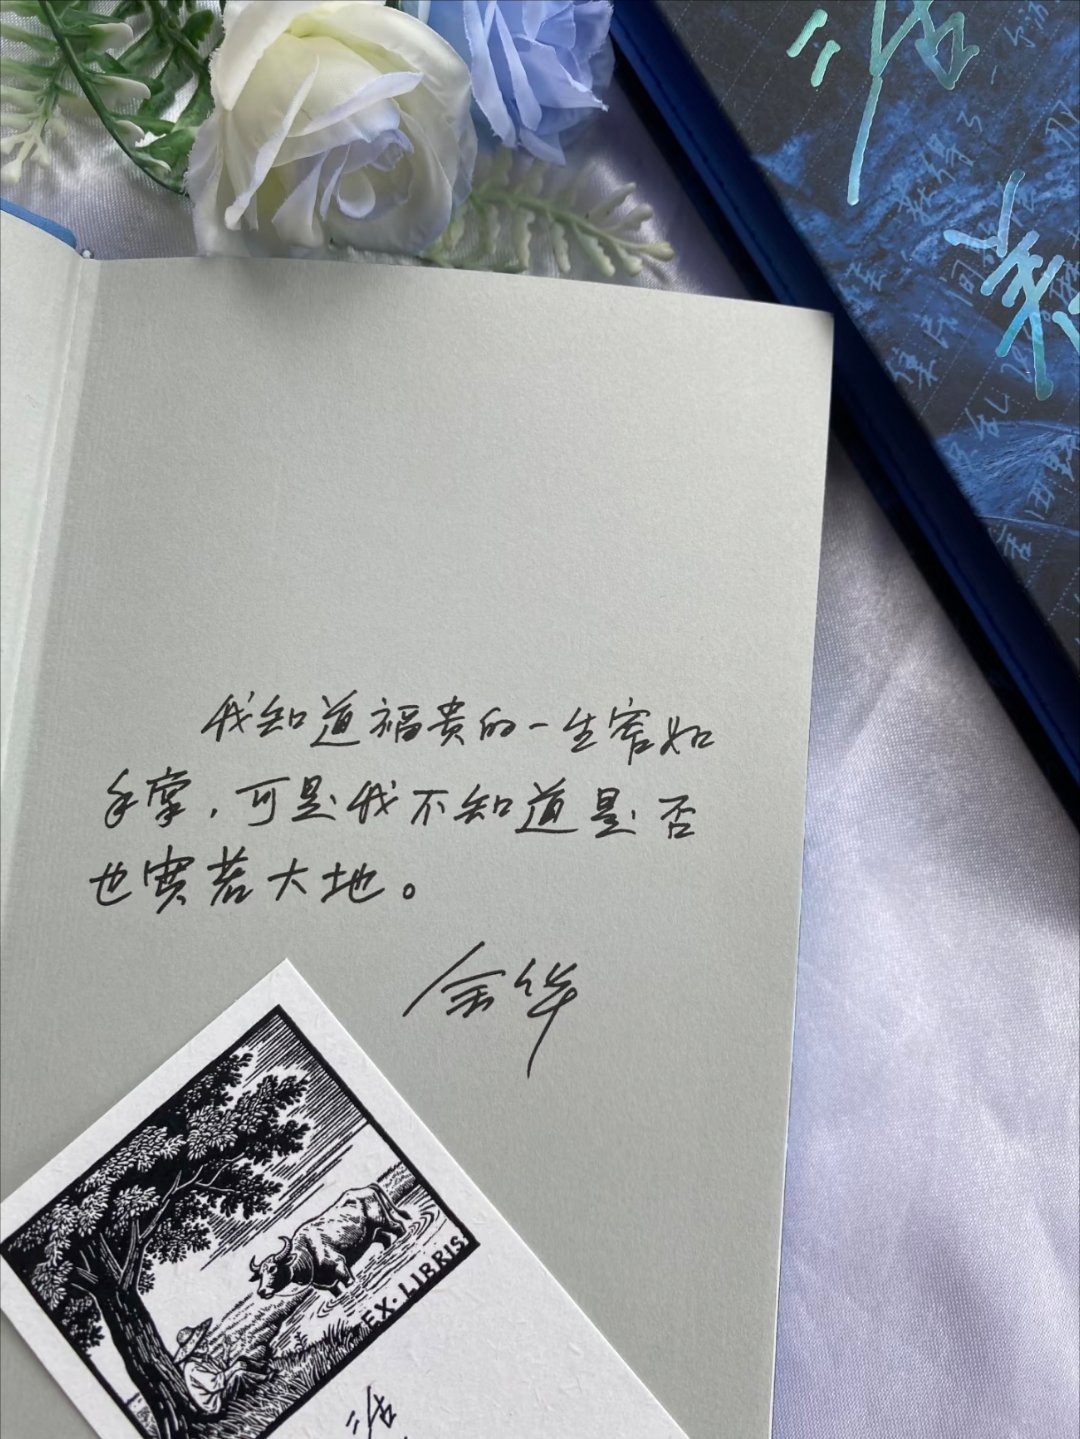 活
着
我知道福贵的一生窄如
手掌,可是我不知道是否
也宽若大地。
余华
EX·LIBRIS
活